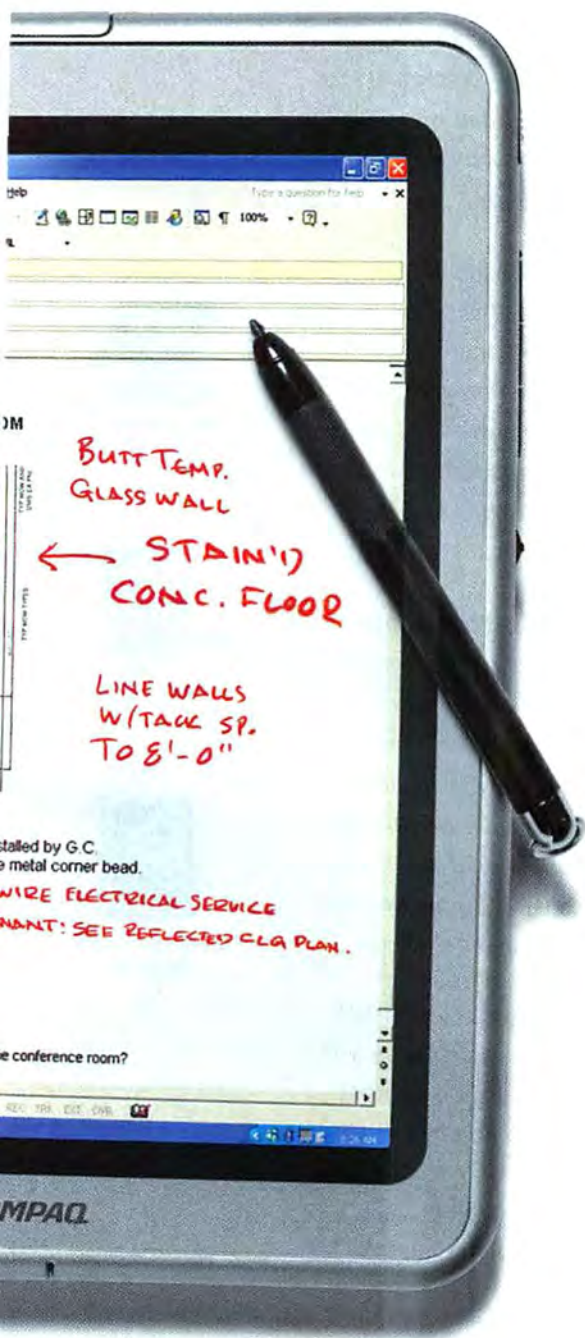 Help Type a question for help
100%
OM
BUTT TEMP.
GLASS WALL
STAIN'D
CONC. FLOOR
LINE WALLS
W/TACK SP.
TO 8'-0"
stalled by G.C.
e metal corner bead.
WIRE ELECTRICAL SERVICE
NANT: SEE REFLECTED CLG PLAN.
e conference room?
REC TRK EXT OVR
MPAQ